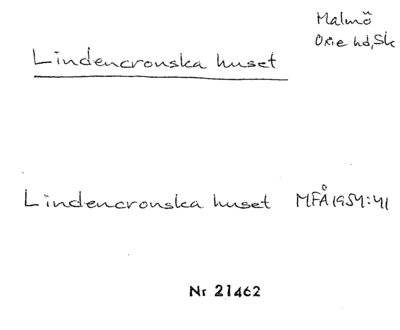 Malmö
Oxie hd, Sk
Lindencronska huset
Lindencronska huset MFÅ 1954:41
Nr 21462